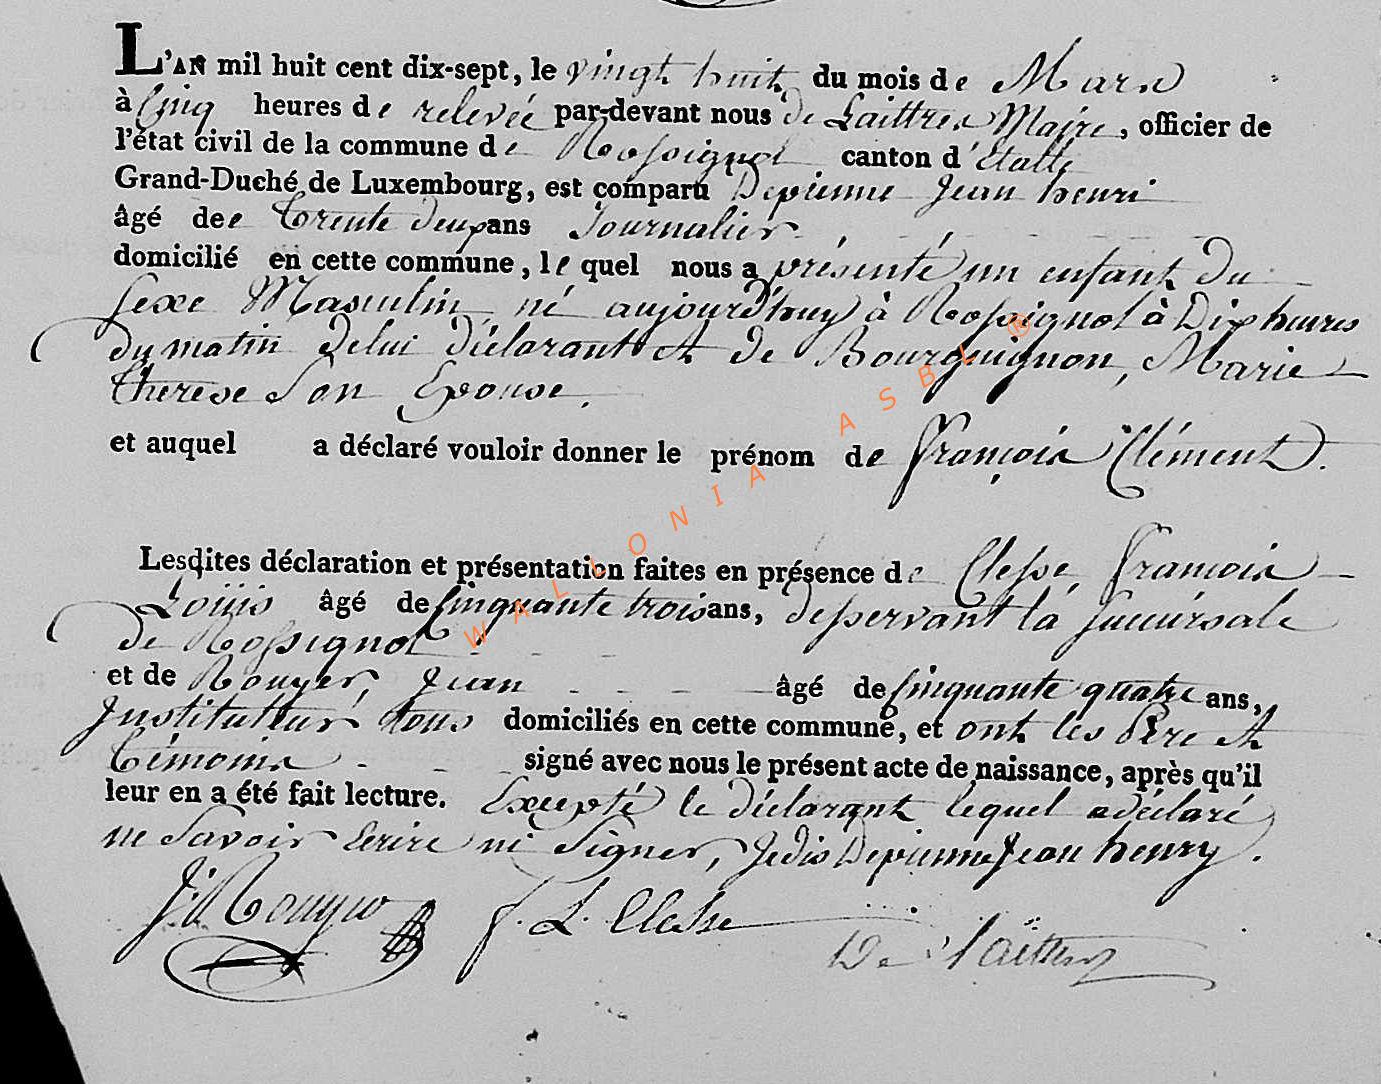 L'AN mil huit cent dix-sept, le vingt huit du mois de Mars
à Cinq heures de relevée par-devant nous de Laittres Maire, officier de
l'état civil de la commune de Rossignol canton d'Etalle
Grand-Duché de Luxembourg, est comparu Depienne Jean henri
âgé dee trente deux ans Journalier
domicilié en cette commune, le quel nous a présenté un enfant du
sexe Masculin né aujourd'huy à Rossignol à Dix heures
du matin de lui déclarant et de Bourguignon, Marie
therese Son Epouse.
et auquel a déclaré vouloir donner le prénom de François Clément.
Lesdites déclaration et présentation faites en présence de Clesse François
Louis âgé de Cinquante trois ans, desservant la succursale
de Rossignol
et de Rouyer, Jean âgé de Cinquante quatre ans,
Instituteur tous domiciliés en cette commune, et ont les Père et
témoins signé avec nous le présent acte de naissance, après qu'il
leur en a été fait lecture. Excepté le déclarant lequel a déclaré
ne Savoir Ecrire ni Signer, Je dis Depienne Jean henry.
J. Rouyer F. L. Clesse
De Laittres
WALLONIA ASBL ®